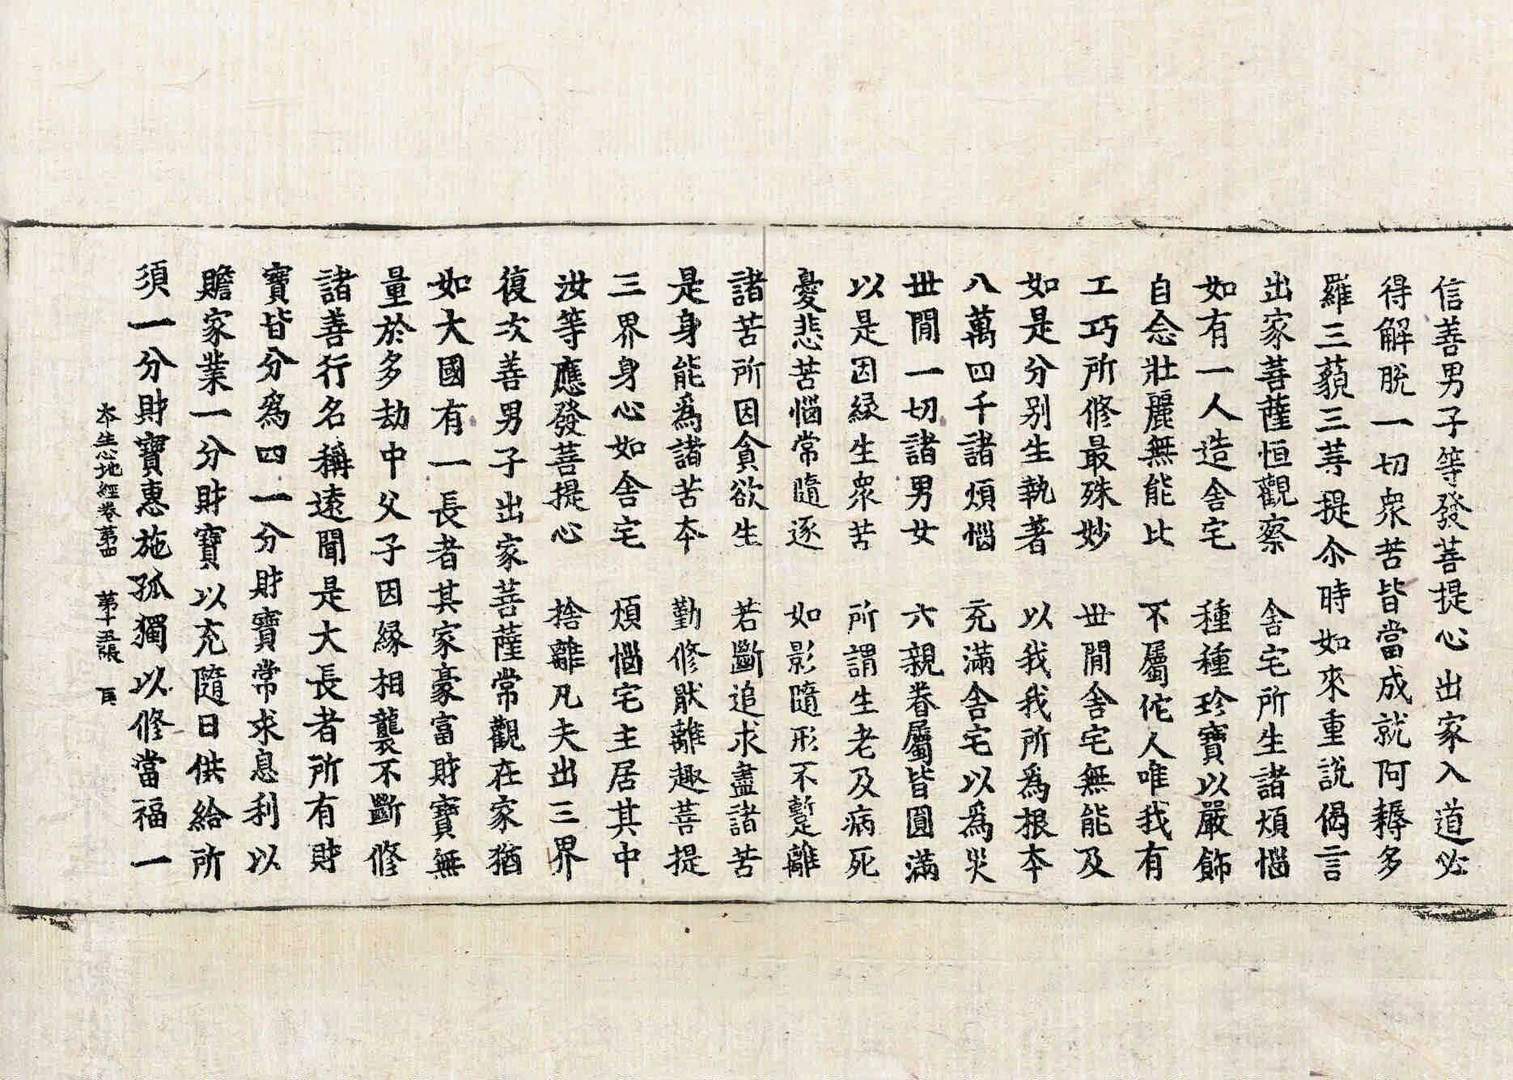 信善男子等發菩提心出家入道必
得解脫一切衆苦皆當成就阿耨多
羅三藐三菩提尒時如來重說偈言
出家菩薩恒觀察　舍宅所生諸煩惱
如有一人造舍宅　種種珍寶以嚴飾
自念壯麗無能比　不屬佗人唯我有
工巧所修最殊妙　世間舍宅無能及
如是分別生執著　以我我所爲根夲
八萬四千諸煩惱　充滿舍宅以爲災
世間一切諸男女　六親眷屬皆圓滿
以是因緣生衆苦　所謂生老及病死
憂悲苦惱常隨逐　如影隨形不蹔離
諸苦所因貪欲生　若斷追求盡諸苦
是身能爲諸苦夲　勤修猒離趣菩提
三界身心如舍宅　煩惱宅主居其中
汝等應發菩提心　捨離凡夫出三界
復次善男子出家菩薩常觀在家猶
如大國有一長者其家豪富財寶無
量於多劫中父子因緣相襲不斷修
諸善行名稱遠聞是大長者所有財
寶皆分爲四一分財寶常求息利以
贍家業一分財寶以充隨日供給所
須一分財寶惠施孤獨以修當福一
夲生心地經卷第四　第十五張